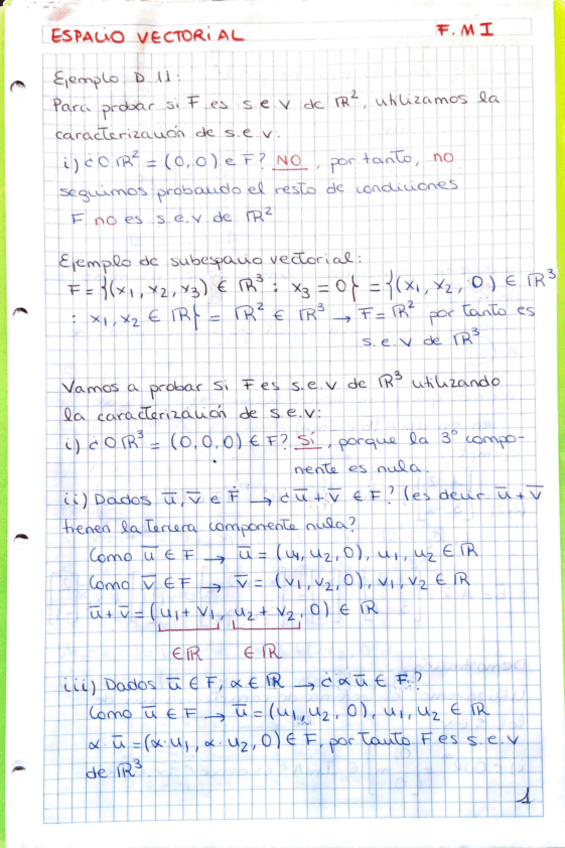 ESPACIO VECTORIAL F.M I
Ejemplo D.11:
Para probar si F es s.e.v de ℝ², utilizamos la
caracterización de s.e.v.
i) ¿0ℝ² = (0,0) e F? NO, por tanto, no
seguimos probando el resto de condiciones
F no es s.e.v de ℝ²
Ejemplo de subespacio vectorial:
F = {(x₁, x₂, x₃) ∈ ℝ³ : x₃ = 0} = {(x₁, x₂, 0) ∈ ℝ³
: x₁, x₂ ∈ ℝ} = ℝ² ∈ ℝ³ → F = ℝ² por tanto es
s.e.v de ℝ³
Vamos a probar si F es s.e.v de ℝ³ utilizando
la caracterización de s.e.v:
i) ¿0ℝ³ = (0,0,0) ∈ F? Sí, porque la 3º compo-
nente es nula.
ii) Dados ū, v̄ e F → ¿ū + v̄ ∈ F? (es decir ū + v̄
tienen la tercera componente nula?
Como ū ∈ F → ū = (u₁, u₂, 0), u₁, u₂ ∈ ℝ
Como v̄ ∈ F → v̄ = (v₁, v₂, 0), v₁, v₂ ∈ ℝ
ū + v̄ = (u₁ + v₁, u₂ + v₂, 0) ∈ ℝ
∈ℝ ∈ℝ
iii) Dados ū ∈ F, α ∈ ℝ → ¿αū ∈ F?
Como ū ∈ F → ū = (u₁, u₂, 0), u₁, u₂ ∈ ℝ
α·ū = (α·u₁, α·u₂, 0) ∈ F, por tanto F es s.e.v
de ℝ³.
1